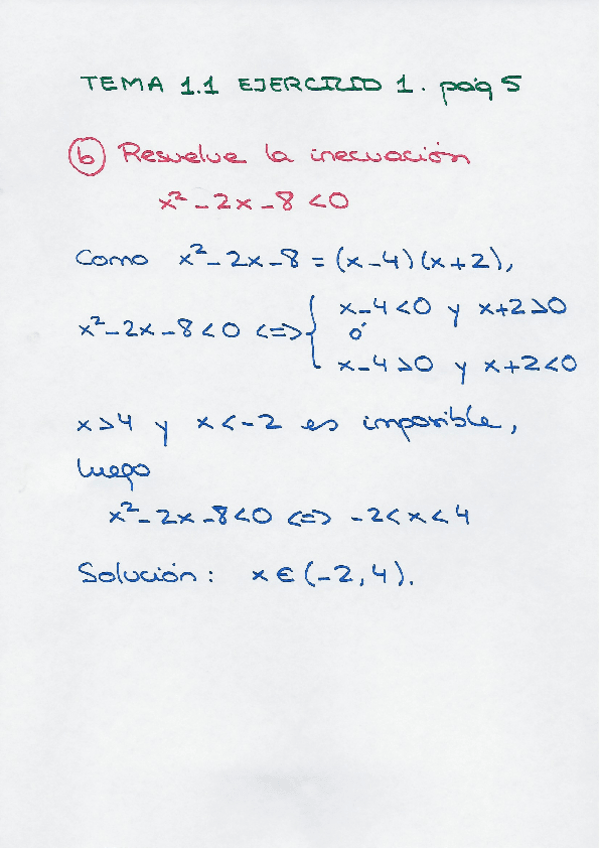 TEMA 1.1 EJERCICIO 1. pág 5
b Resuelve la inecuación
x² - 2x - 8 < 0
Como x² - 2x - 8 = (x - 4)(x + 2),
x - 4 < 0 y x + 2 > 0
x² - 2x - 8 < 0 <=> { ó
x - 4 > 0 y x + 2 < 0
x > 4 y x < -2 es imposible,
luego
x² - 2x - 8 < 0 <=> -2 < x < 4
Solución: x ∈ (-2, 4).